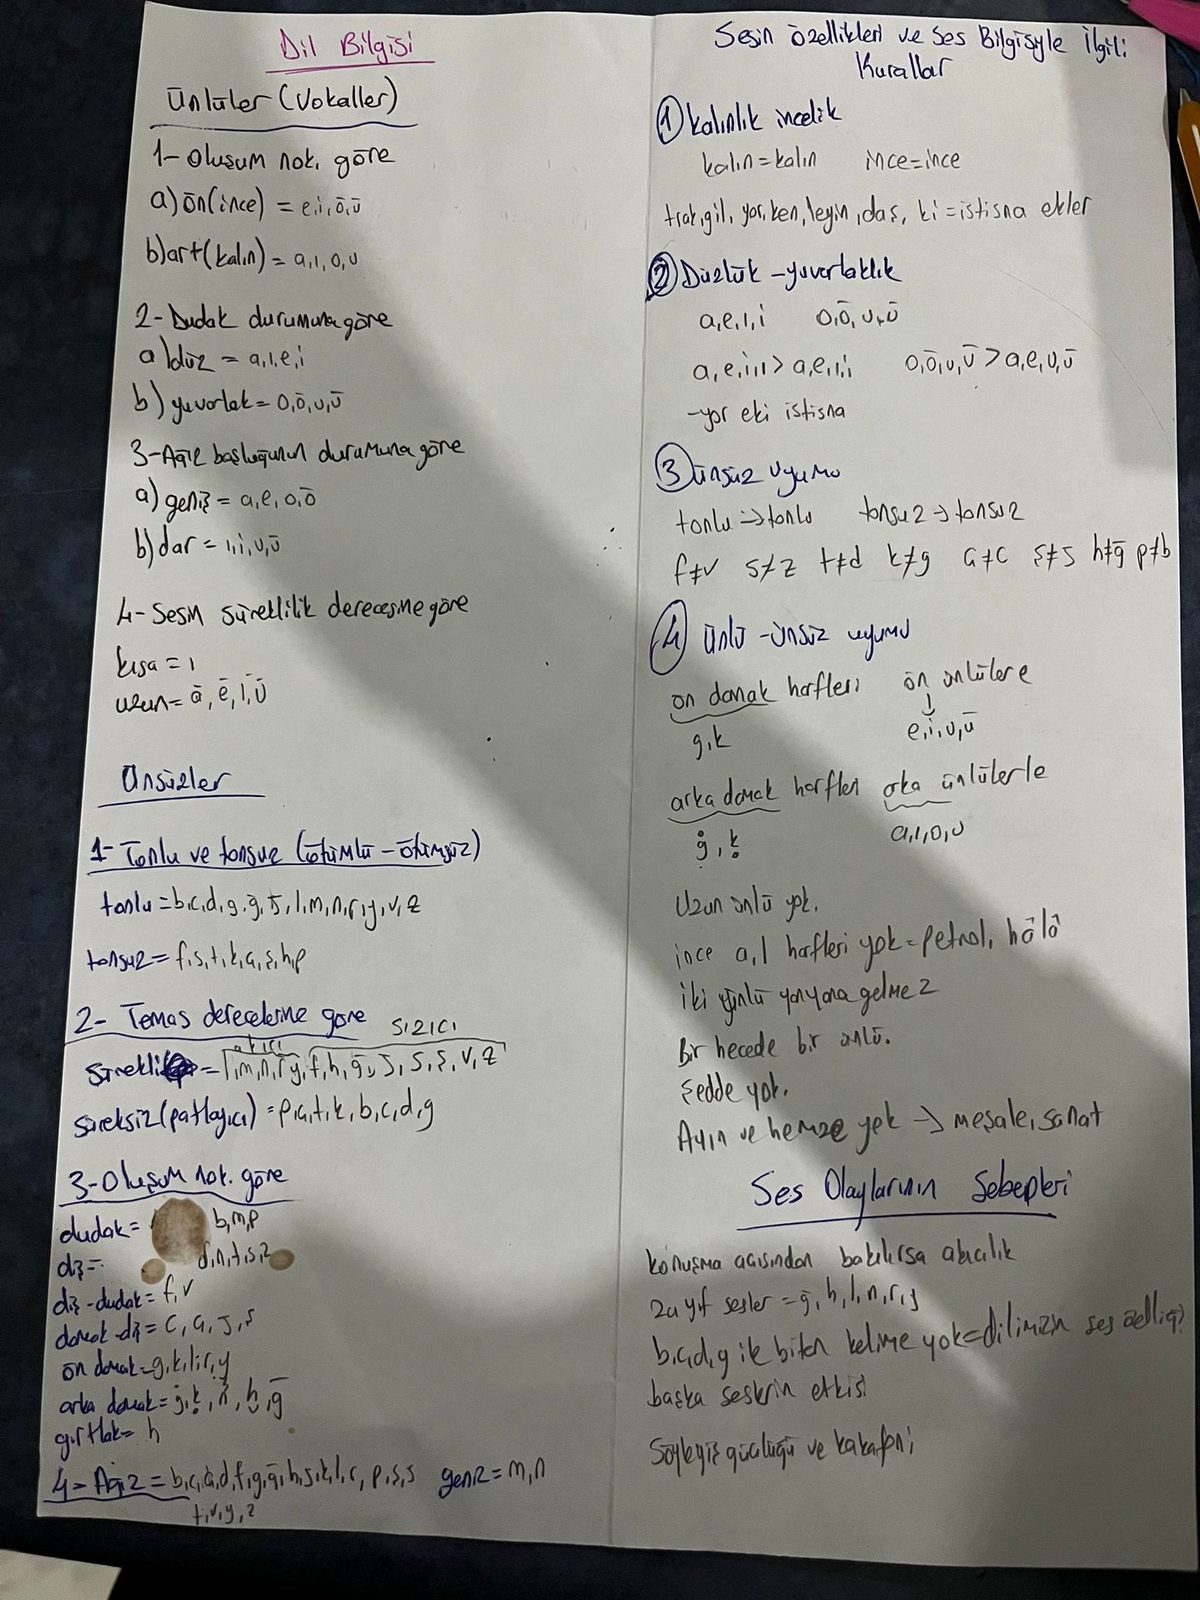 Dil Bilgisi
Ünlüler (Vokaller)
1- Oluşum nok. göre
a) ön (ince) = e, i, ö, ü
b) art (kalın) = a, ı, o, u
2- Dudak durumuna göre
a) düz = a, ı, e, i
b) yuvarlak = o, ö, u, ü
3- Ağız boşluğunun durumuna göre
a) geniş = a, e, o, ö
b) dar = ı, i, u, ü
4- Sesin süreklilik derecesine göre
kısa = ı
uzun = ā, ē, ī, ū
Ünsüzler
1- Tonlu ve tonsuz (ötümlü - ötümsüz)
tonlu = b, c, d, g, ğ, j, l, m, n, r, y, v, z
tonsuz = f, s, t, k, ç, ş, h, p
2- Temas derecelerine göre
akıcı sızıcı
sürekli = l, m, n, r, y, f, h, ğ, j, s, ş, v, z
süreksiz (patlayıcı) = p, ç, t, k, b, c, d, g
3- Oluşum nok. göre
dudak = b, m, p
diş = d, n, t, s, z
diş-dudak = f, v
damak-diş = c, ç, j, ş
ön damak = g, k, l, r, y
arka damak = ġ, ḳ, ñ, ḫ, ğ
gırtlak = h
4- Ağız = b, c, ç, d, f, g, ğ, h, j, k, l, r, p, ş, s geniz = m, n
t, v, y, z
Sesin Özellikleri ve Ses Bilgisiyle İlgili
Kurallar
① Kalınlık incelik
kalın = kalın ince = ince
trak, gil, yor, ken, leyin, daş, ki = istisna ekler
② Düzlük - yuvarlaklık
a, e, ı, i o, ö, u, ü
a, e, i, ı > a, e, ı, i o, ö, u, ü > a, e, u, ü
-yor eki istisna
③ Ünsüz uyumu
tonlu → tonlu tonsuz → tonsuz
f≠v s≠z t≠d k≠g ç≠c ş≠j h≠ğ p≠b
④ Ünlü - ünsüz uyumu
ön damak harfleri ön ünlülere
g, k e, i, u, ü
arka damak harfleri arka ünlülerle
ġ, ḳ a, ı, o, u
Uzun ünlü yok.
ince a, l harfleri yok = petrol, hâlâ
iki ünlü yanyana gelmez
Bir hecede bir ünlü.
Şedde yok.
Ayın ve hemze yok → meşale, sanat
Ses Olaylarının Sebepleri
Konuşma açısından bakılırsa akıcılık
zayıf sesler = ğ, h, l, n, r, y
b, c, d, g ile biten kelime yok = dilimizin ses özelliği
başka seslerin etkisi
Söyleyiş güçlüğü ve kakafoni